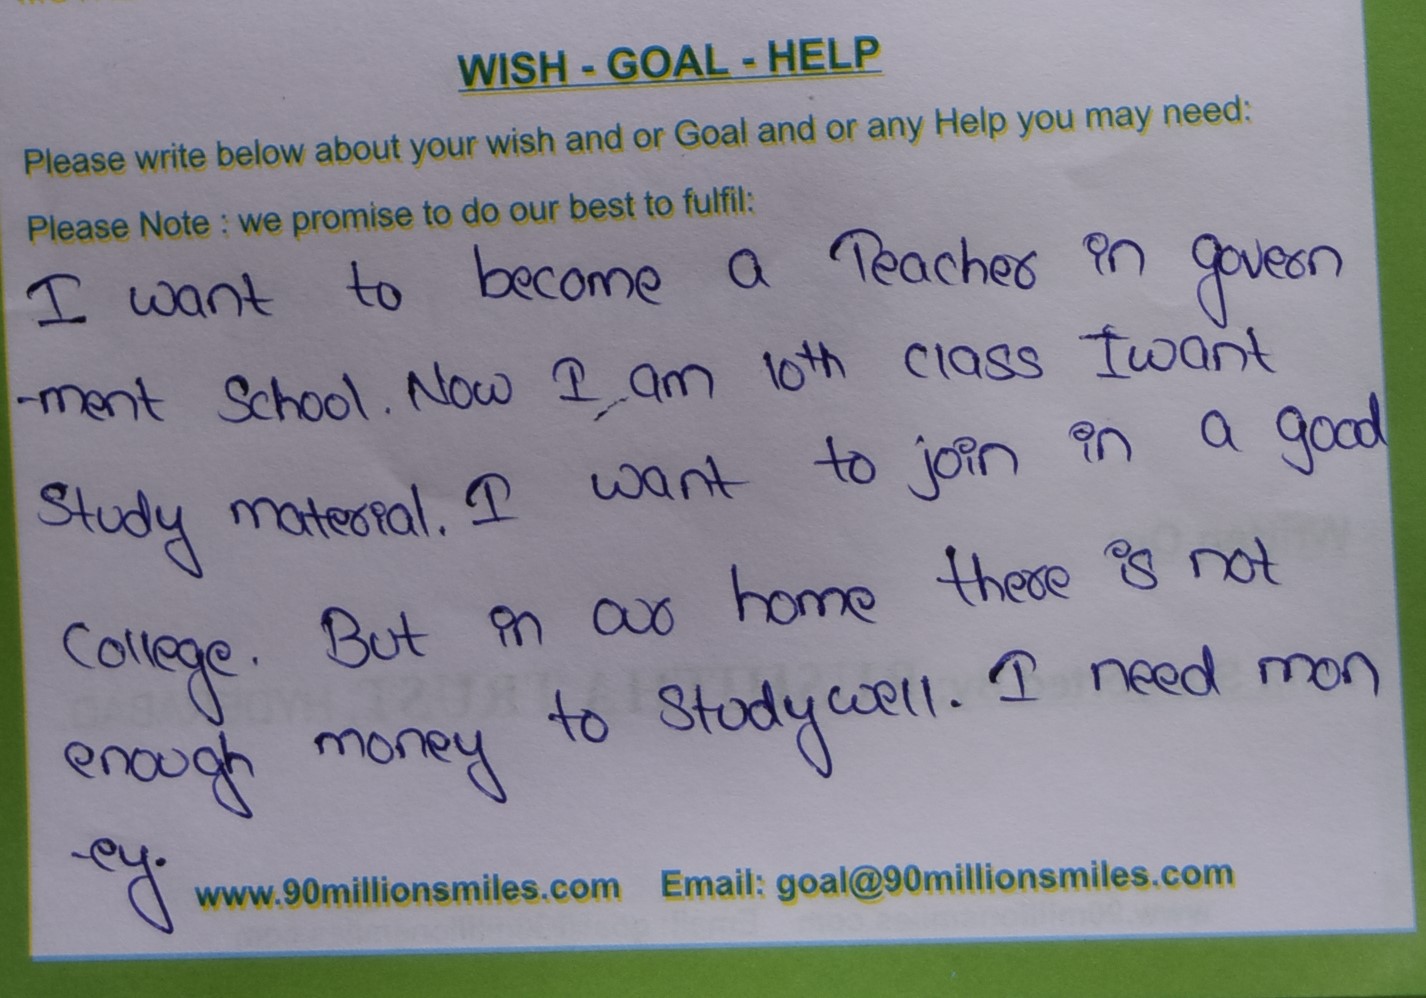 WISH - GOAL - HELP
Please write below about your wish and or Goal and or any Help you may need:
Please Note : we promise to do our best to fulfil:
I want to become a Teacher in govern
-ment School. Now I am 10th class I want
Study material. I want to join in a good
College. But in our home there is not
enough money to Study well. I need mon
-ey.
www.90millionsmiles.com Email: goal@90millionsmiles.com